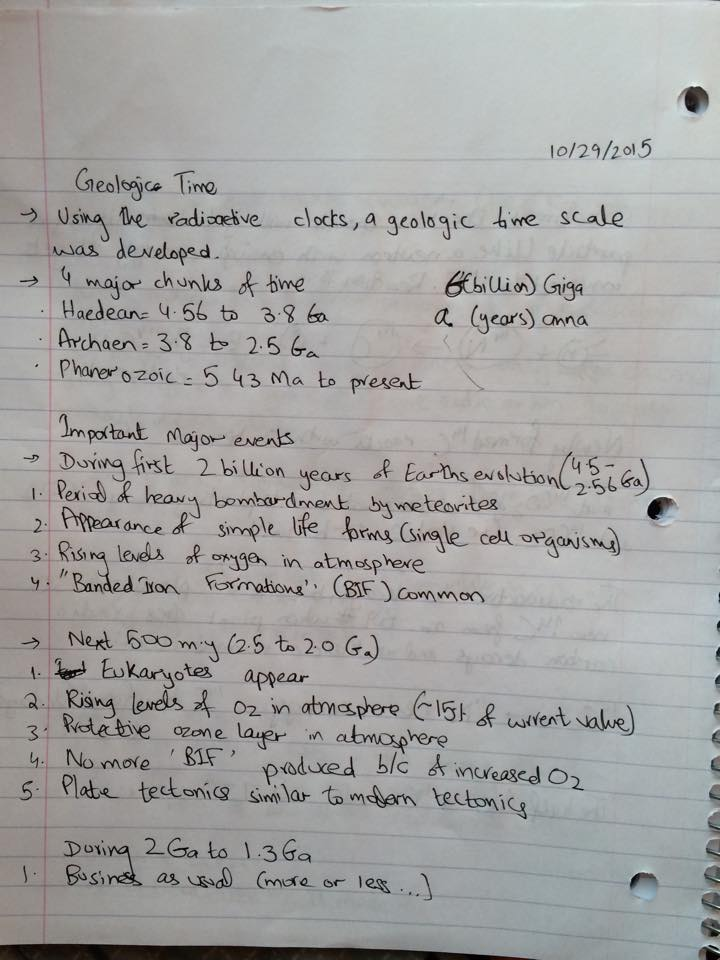 10/29/2015
Geologic Time
→ Using the radioactive clocks, a geologic time scale
was developed.
→ 4 major chunks of time
G(billion) Giga
· Haedean = 4.56 to 3.8 Ga
a (years) anna
· Archaen = 3.8 to 2.5 Ga
· Phanerozoic = 543 Ma to present
Important Major events
→ During first 2 billion years of Earths evolution (4.5-
2.56 Ga)
1. Period of heavy bombardment by meteorites
2. Appearance of simple life forms (single cell organisms)
3. Rising levels of oxygen in atmosphere
4. "Banded Iron Formations". (BIF) common
→ Next 500 m.y (2.5 to 2.0 Ga)
1. Eukaryotes appear
2. Rising levels of O2 in atmosphere (~15% of current value)
3. Protective ozone layer in atmosphere
4. No more 'BIF' produced b/c of increased O2
5. Plate tectonics similar to modern tectonics
During 2 Ga to 1.3 Ga
1. Business as usual (more or less...)